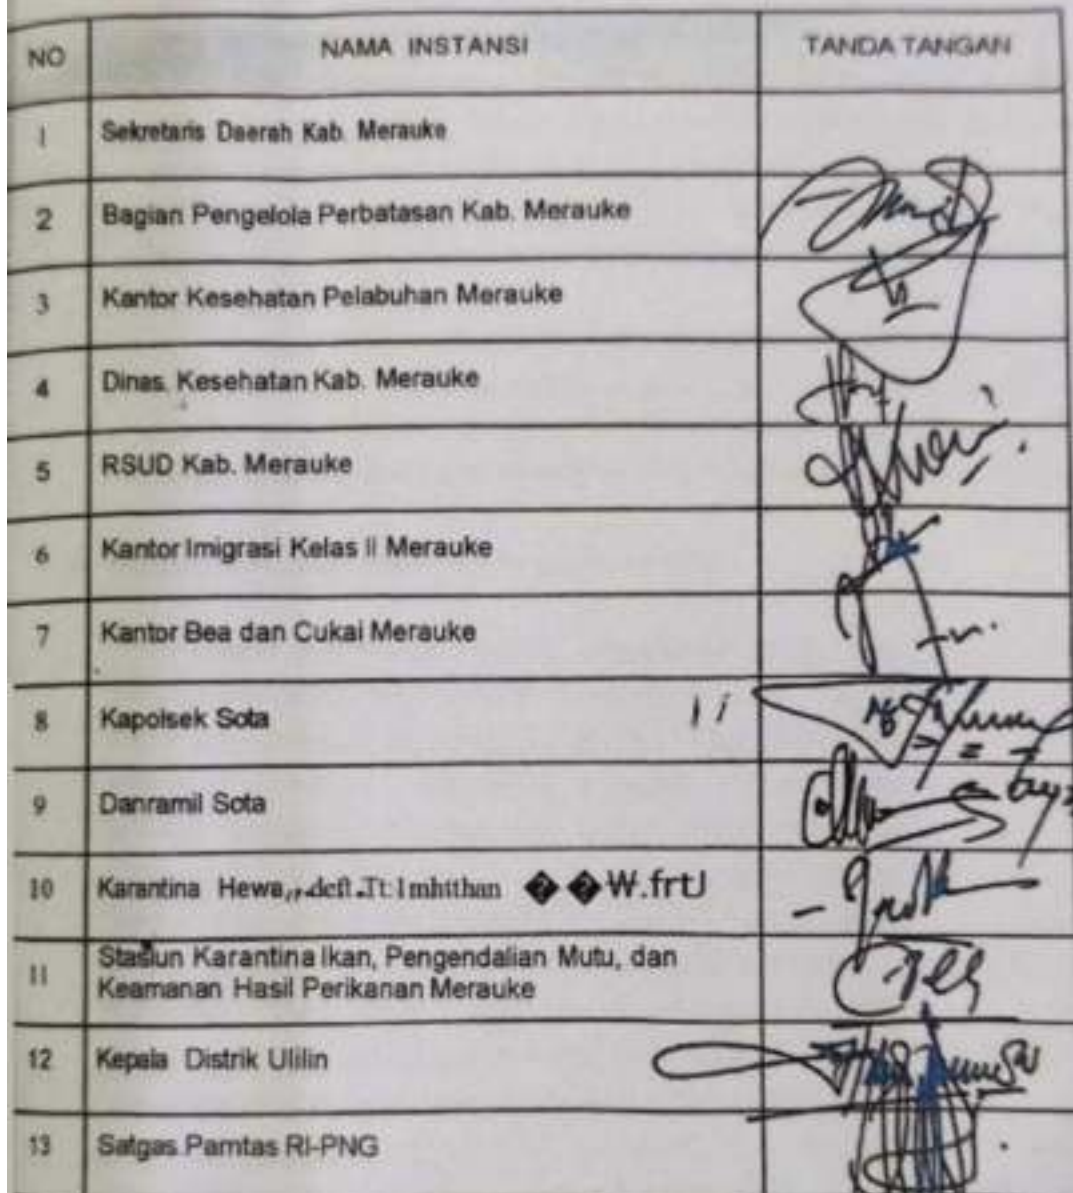 NO NAMA INSTANSI TANDA TANGAN
1 Sekretaris Daerah Kab. Merauke
2 Bagian Pengelola Perbatasan Kab. Merauke
3 Kantor Kesehatan Pelabuhan Merauke
4 Dinas. Kesehatan Kab. Merauke
5 RSUD Kab. Merauke
6 Kantor Imigrasi Kelas II Merauke
7 Kantor Bea dan Cukai Merauke
8 Kapolsek Sota
9 Danramil Sota
10 Karantina Hewa
11 Stasiun Karantina Ikan, Pengendalian Mutu, dan
Keamanan Hasil Perikanan Merauke
12 Kepala Distrik Ulilin
13 Satgas Pamtas RI-PNG